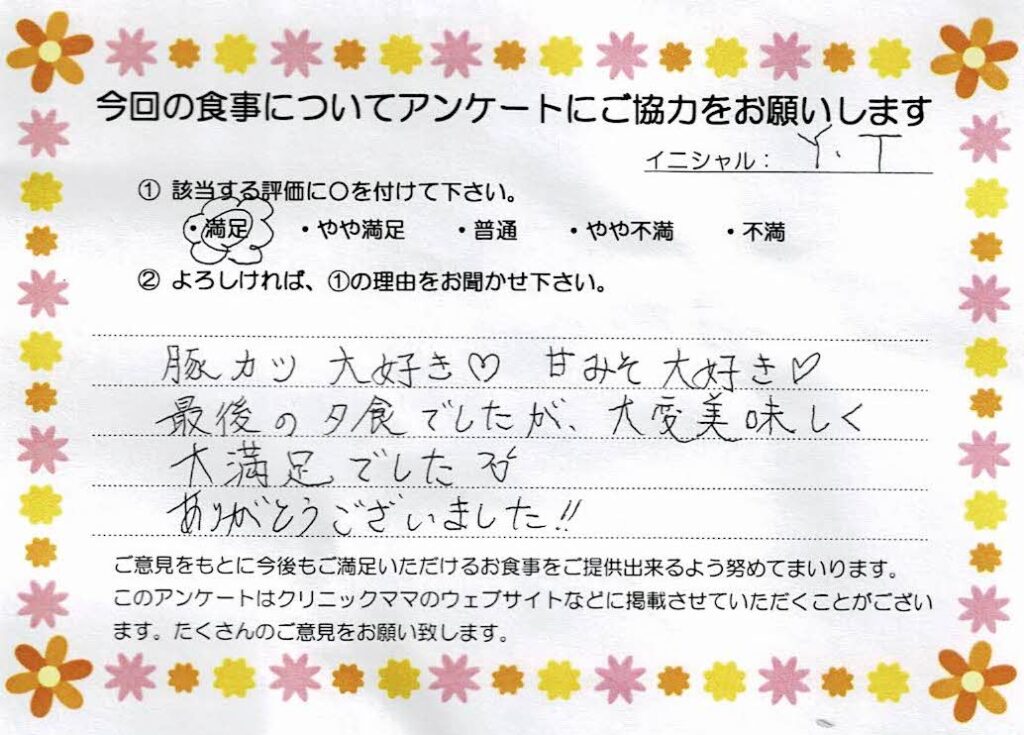 今回の食事についてアンケートにご協力をお願いします
イニシャル: Y.T
① 該当する評価に〇を付けて下さい。
・満足 ・やや満足 ・普通 ・やや不満 ・不満
② よろしければ、①の理由をお聞かせ下さい。
豚カツ 大好き♡ 甘みそ 大好き♡
最後の夕食でしたが、大変美味しく
大満足でした
ありがとうございました!!
ご意見をもとに今後もご満足いただけるお食事をご提供出来るよう努めてまいります。
このアンケートはクリニックママのウェブサイトなどに掲載させていただくことがござい
ます。たくさんのご意見をお願い致します。